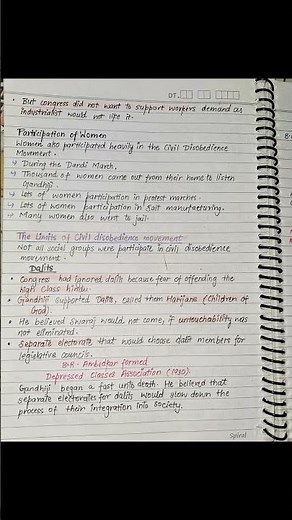 DT.
• But congress did not want to support workers demand as
industrialist would not like it.
Participation of Women
Women also participated heavily in the Civil Disobedience
Movement.
During the Dandi March.
Thousand of women came out from their home to listen
Gandhiji.
Lots of women participation in protest marches.
Lots of women participation in salt manufacturing.
Many women also went to jail.
The Limits of Civil disobedience movement
Not all social groups were participate in civil disobedience
movement.
Dalits
• Congress had ignored dalits because fear of offending the
high class hindu.
• Gandhiji supported Dalits, called them Harijans (Children of
God).
• He believed Swaraj would not come, if untouchability was
not eliminated.
• Separate electorate that would choose dalit members for
legislative councils.
B.R. Ambedkar formed
Depressed Classes Association (1930).
Gandhiji began a fast unto death. He believed that
separate electorates for dalits would slow down the
process of their integration into society.
Spiral